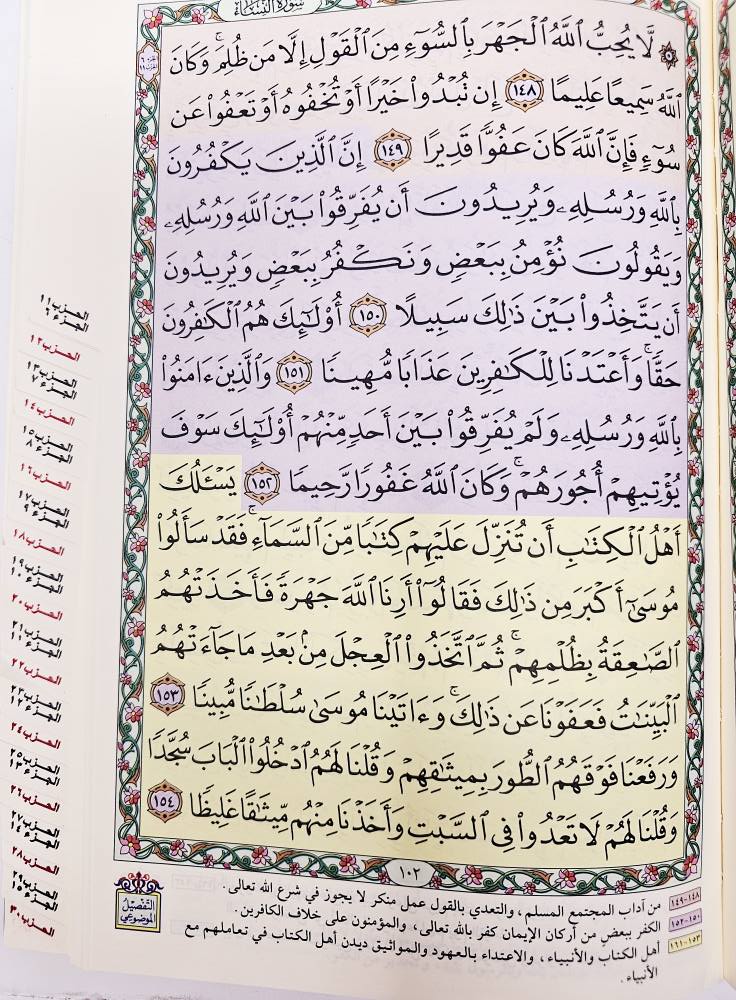 سورة النساء
۞ لَّا يُحِبُّ ٱللَّهُ ٱلْجَهْرَ بِٱلسُّوٓءِ مِنَ ٱلْقَوْلِ إِلَّا مَن ظُلِمَ ۚ وَكَانَ
ٱللَّهُ سَمِيعًا عَلِيمًا ١٤٨ إِن تُبْدُوا۟ خَيْرًا أَوْ تُخْفُوهُ أَوْ تَعْفُوا۟ عَن
سُوٓءٍ فَإِنَّ ٱللَّهَ كَانَ عَفُوًّا قَدِيرًا ١٤٩ إِنَّ ٱلَّذِينَ يَكْفُرُونَ
بِٱللَّهِ وَرُسُلِهِۦ وَيُرِيدُونَ أَن يُفَرِّقُوا۟ بَيْنَ ٱللَّهِ وَرُسُلِهِۦ
وَيَقُولُونَ نُؤْمِنُ بِبَعْضٍ وَنَكْفُرُ بِبَعْضٍ وَيُرِيدُونَ
أَن يَتَّخِذُوا۟ بَيْنَ ذَٰلِكَ سَبِيلًا ١٥٠ أُو۟لَٰٓئِكَ هُمُ ٱلْكَٰفِرُونَ
حَقًّا ۚ وَأَعْتَدْنَا لِلْكَٰفِرِينَ عَذَابًا مُّهِينًا ١٥١ وَٱلَّذِينَ ءَامَنُوا۟
بِٱللَّهِ وَرُسُلِهِۦ وَلَمْ يُفَرِّقُوا۟ بَيْنَ أَحَدٍ مِّنْهُمْ أُو۟لَٰٓئِكَ سَوْفَ
يُؤْتِيهِمْ أُجُورَهُمْ ۗ وَكَانَ ٱللَّهُ غَفُورًا رَّحِيمًا ١٥٢ يَسْـَٔلُكَ
أَهْلُ ٱلْكِتَٰبِ أَن تُنَزِّلَ عَلَيْهِمْ كِتَٰبًا مِّنَ ٱلسَّمَآءِ ۚ فَقَدْ سَأَلُوا۟
مُوسَىٰٓ أَكْبَرَ مِن ذَٰلِكَ فَقَالُوٓا۟ أَرِنَا ٱللَّهَ جَهْرَةً فَأَخَذَتْهُمُ
ٱلصَّٰعِقَةُ بِظُلْمِهِمْ ۚ ثُمَّ ٱتَّخَذُوا۟ ٱلْعِجْلَ مِنۢ بَعْدِ مَا جَآءَتْهُمُ
ٱلْبَيِّنَٰتُ فَعَفَوْنَا عَن ذَٰلِكَ ۚ وَءَاتَيْنَا مُوسَىٰ سُلْطَٰنًا مُّبِينًا ١٥٣
وَرَفَعْنَا فَوْقَهُمُ ٱلطُّورَ بِمِيثَٰقِهِمْ وَقُلْنَا لَهُمُ ٱدْخُلُوا۟ ٱلْبَابَ سُجَّدًا
وَقُلْنَا لَهُمْ لَا تَعْدُوا۟ فِى ٱلسَّبْتِ وَأَخَذْنَا مِنْهُم مِّيثَٰقًا غَلِيظًا ١٥٤
١٠٢
١٤٨-١٤٩ من آداب المجتمع المسلم، والتعدي بالقول عمل منكر لا يجوز في شرع الله تعالى.
١٥٠-١٥٢ الكفر ببعض من أركان الإيمان كفر بالله تعالى، والمؤمنون على خلاف الكافرين.
١٥٣-١٦١ أهل الكتاب والأنبياء، والاعتداء بالعهود والمواثيق ديدن أهل الكتاب في تعاملهم مع
الأنبياء.
التفصيل
الموضوعي
الحزب ١١
الجزء ٦
الحزب ١٢
الحزب ١٣
الجزء ٧
الحزب ١٤
الحزب ١٥
الجزء ٨
الحزب ١٦
الحزب ١٧
الجزء ٩
الحزب ١٨
الحزب ١٩
الجزء ١٠
الحزب ٢٠
الحزب ٢١
الجزء ١١
الحزب ٢٢
الحزب ٢٣
الجزء ١٢
الحزب ٢٤
الحزب ٢٥
الجزء ١٣
الحزب ٢٦
الحزب ٢٧
الجزء ١٤
الحزب ٢٨
الحزب ٢٩
الجزء ١٥
الحزب ٣٠